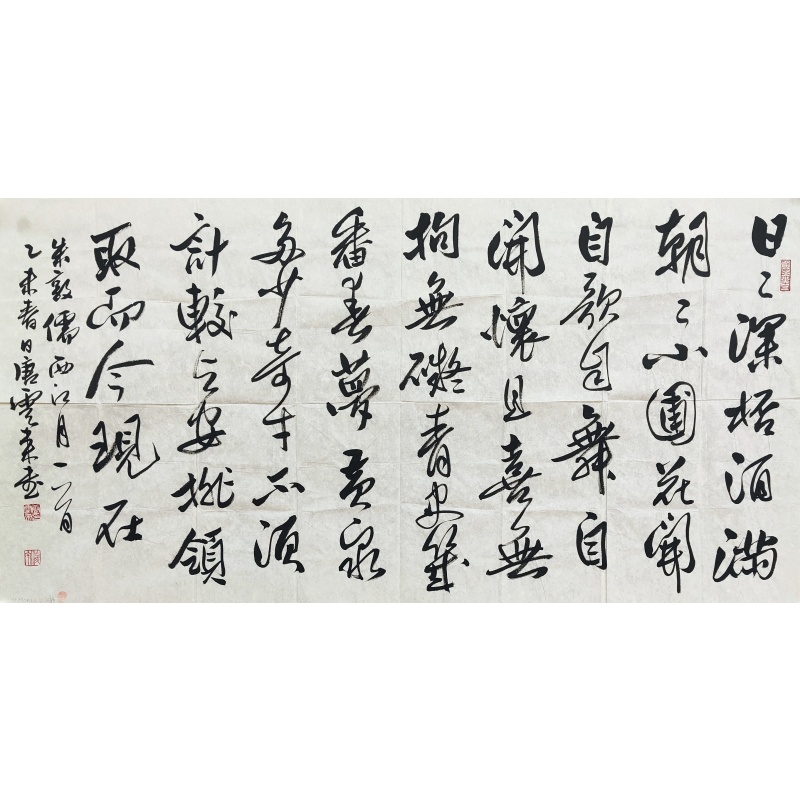 日〻深杯酒滿
朝〻小圃花開
自歌自舞自
開懷且喜無
拘無礙青史幾
番春夢黃泉
多少奇才不須
計較与安排領
取而今現在
朱敦儒西江月一首
乙未春日唐雲来書